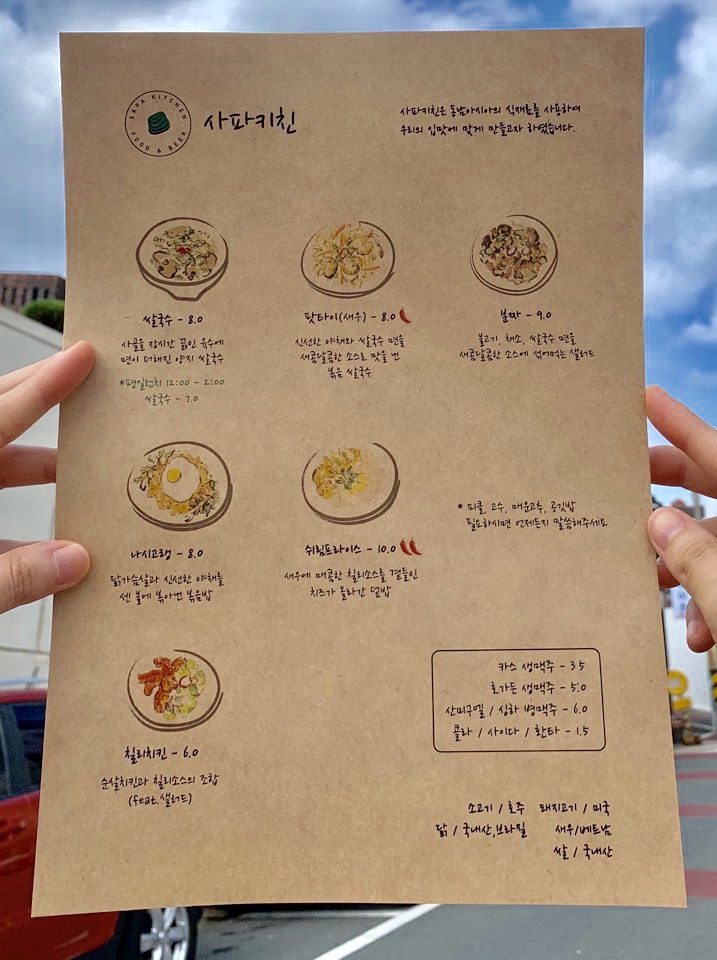 SAPA KITCHEN
FOOD & BEER
사파키친
사파키친은 동남아시아의 식재료를 사용하여
우리의 입맛에 맞게 만들고자 하였습니다.
쌀국수 - 8.0
사골을 장시간 끓인 육수에
면이 더해진 양지 쌀국수
*평일런치 12:00 - 2:00
쌀국수 - 7.0
팟타이(새우) - 8.0
신선한 야채와 쌀국수 면을
새콤달콤한 소스로 맛을 낸
볶음 쌀국수
분짜 - 9.0
불고기, 채소, 쌀국수 면을
새콤달콤한 소스에 섞어먹는 샐러드
나시고랭 - 8.0
닭가슴살과 신선한 야채를
센 불에 볶아낸 볶음밥
쉬림프라이스 - 10.0
새우에 매콤한 칠리소스를 곁들인
치즈가 올라간 덮밥
* 피클, 고수, 매운고추, 공깃밥
필요하시면 언제든지 말씀해주세요
칠리치킨 - 6.0
순살치킨과 칠리소스의 조합
(feat.샐러드)
카스 생맥주 - 3.5
호가든 생맥주 - 5.0
산미구엘 / 싱하 병맥주 - 6.0
콜라 / 사이다 / 환타 - 1.5
소고기 / 호주 돼지고기 / 미국
닭 / 국내산,브라질 새우/베트남
쌀 / 국내산